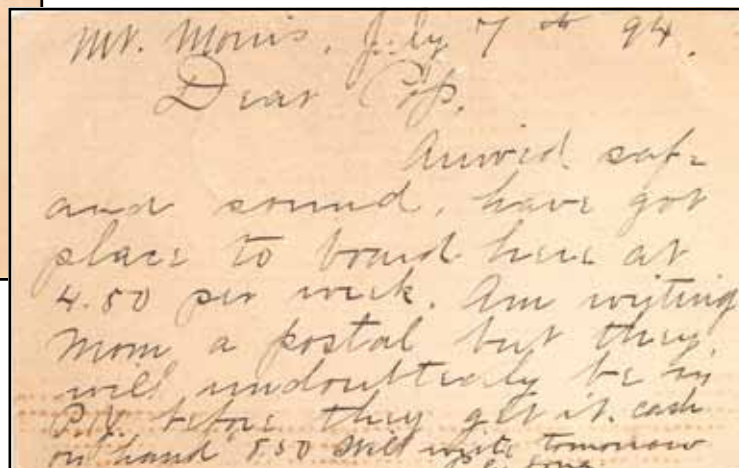 Mt. Morris, July 7th 94.
Dear Pop,
Arrived safe
and sound, have got
place to board here at
4.50 per week. Am writing
Mom a postal but they
will undoubtedly be in
P.V. before they get it. cash
on hand 850 Will write tomorrow